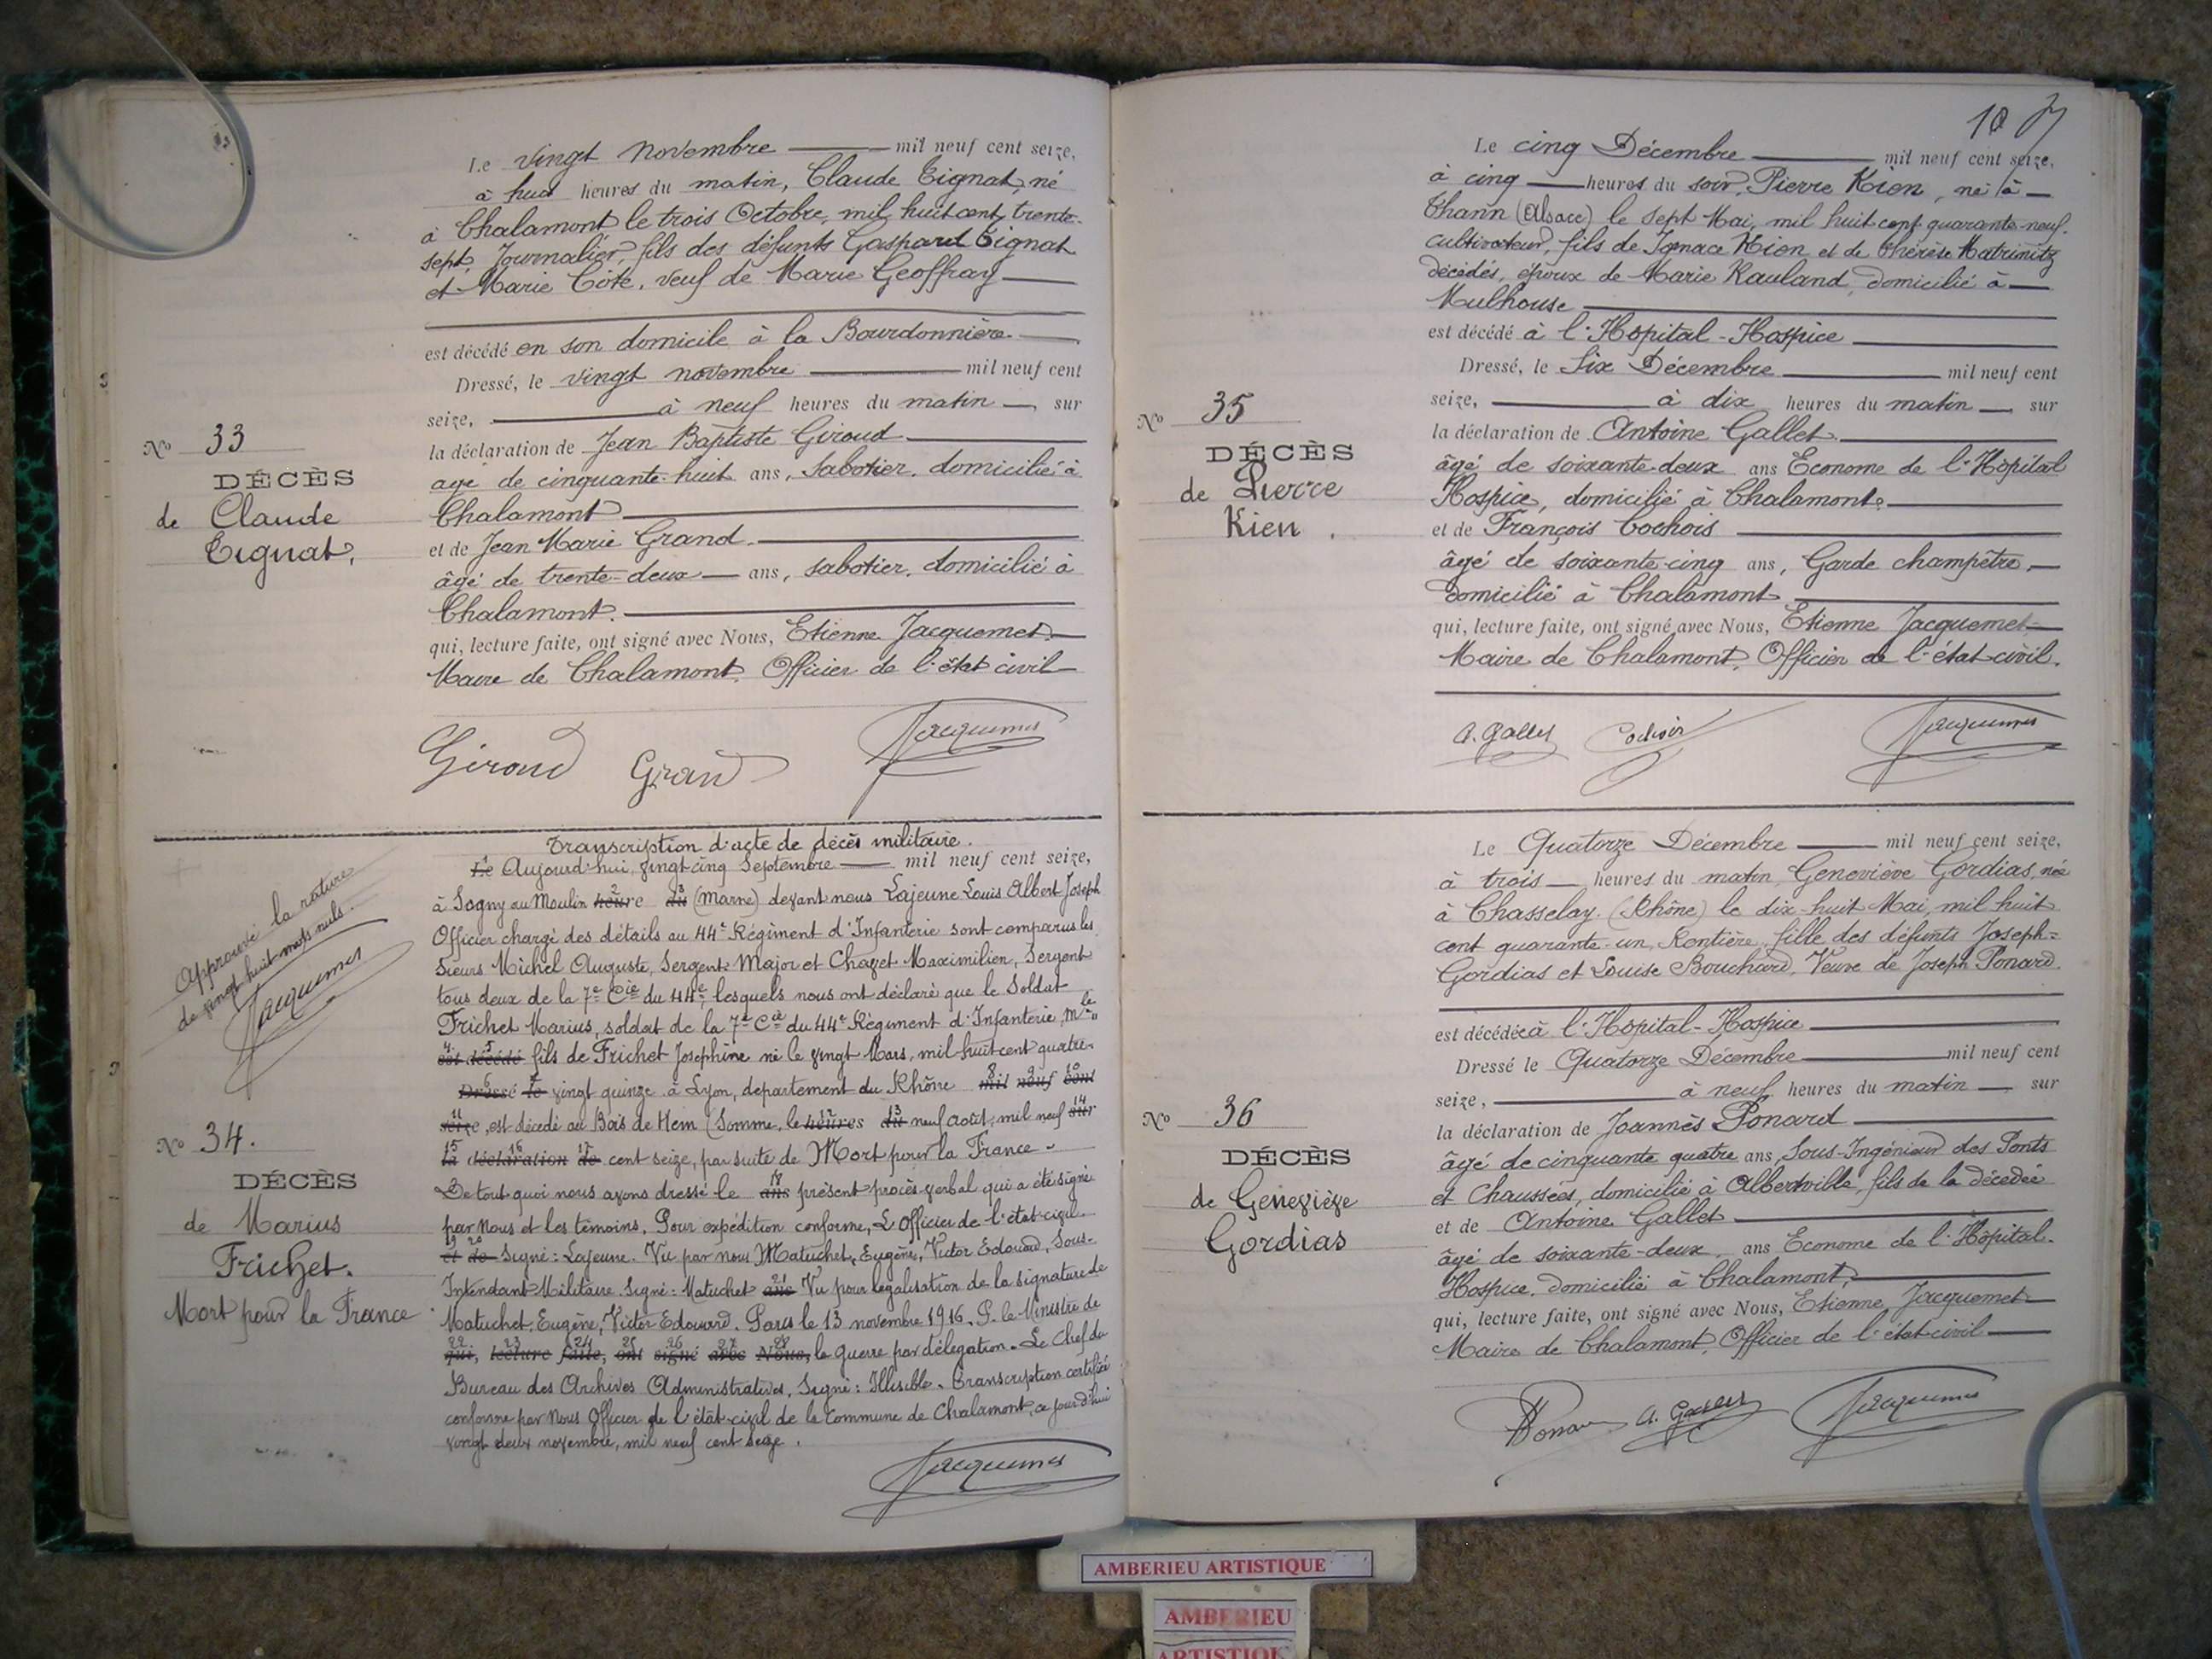 Le vingt novembre mil neuf cent seize,
à huit heures du matin, Claude Tignat, né
à Chalamont le trois Octobre, mil huit cent trente-
sept, Journalier, fils des défunts Gaspard Tignat
et Marie Côte, veuf de Marie Geoffray
est décédé en son domicile à la Bourdonnière
Dressé, le vingt novembre mil neuf cent
seize, à neuf heures du matin, sur
la déclaration de Jean Baptiste Giroud
âgé de cinquante-huit ans, Sabotier, domicilié à
Chalamont
et de Jean Marie Grand.
âgé de trente-deux ans, sabotier, domicilié à
Chalamont.
qui, lecture faite, ont signé avec Nous, Etienne Jacquemet
Maire de Chalamont, Officier de l'état civil
Giroud Grand Jacquemet
No 33
DÉCÈS
de Claude
Tignat.
Transcription d'acte de décès militaire.
Le Aujourd'hui, vingt cinq Septembre mil neuf cent seize,
à Sogny au Moulin heure du (Marne) devant nous Lajeune Louis Albert Joseph
Officier chargé des détails au 44e Régiment d'Infanterie sont comparus les
Sieurs Michel Auguste, Sergent Major et Chazet Maximilien, Sergent
tous deux de la 7e Cie du 44e, lesquels nous ont déclaré que le Soldat
Frichet Marius, soldat de la 7e Cie du 44e Régiment d'Infanterie, Mle "
est décédé fils de Frichet Joséphine né le vingt Mars, mil huit cent quatre-
Dressé le vingt quinze à Lyon, département du Rhône mil neuf cent
seize, est décédé au Bois de Hem (Somme, le heures du neuf août, mil neuf sur
la déclaration de cent seize, par suite de Mort pour la France -
De tout quoi nous avons dressé le ans présent procès-verbal qui a été signé
par nous et les témoins. Pour expédition conforme, L'Officier de l'état-civil.
et de Signé: Lajeune. Vu par nous Matuchet, Eugène, Victor Edouard, Sous-
Intendant Militaire. Signé: Matuchet ans Vu pour légalisation de la signature de
Matuchet, Eugène, Victor Edouard. Paris le 13 novembre 1916. P. le Ministre de
qui, lecture faite, ont signé avec Nous, la guerre par délégation. Le Chef du
Bureau des Archives Administratives, Signé: Illisible. Transcription certifiée
conforme par Nous Officier de l'état-civil de la Commune de Chalamont, ce jour d'hui
vingt deux novembre, mil neuf cent seize.
Jacquemet
Approuvé la rature
de vingt huit mots nuls.
Jacquemet
No 34.
DÉCÈS
de Marius
Frichet.
Mort pour la France
10
Le cinq Décembre mil neuf cent seize,
à cinq heures du soir, Pierre Kien, né à
Thann (Alsace) le sept Mai, mil huit cent quarante-neuf.
cultivateur, fils de Ignace Kien et de Thérèse Matrimitz
décédés, époux de Marie Rauland, domicilié à
Mulhouse
est décédé à l'Hôpital-Hospice
Dressé, le Six Décembre mil neuf cent
seize, à dix heures du matin, sur
la déclaration de Antoine Gallet
âgé de soixante-deux ans Econome de l'Hôpital
Hospice, domicilié à Chalamont.
et de François Cochois
âgé de soixante-cinq ans, Garde champêtre,
domicilié à Chalamont
qui, lecture faite, ont signé avec Nous, Etienne Jacquemet
Maire de Chalamont, Officier de l'état-civil.
A. Gallet Cochois Jacquemet
No 35
DÉCÈS
de Pierre
Kien.
Le Quatorze Décembre mil neuf cent seize,
à trois heures du matin, Geneviève Gordias, née
à Chasselay (Rhône) le dix-huit Mai, mil huit
cent quarante-un, Rentière, fille des défunts Joseph
Gordias et Louise Bouchard, Veuve de Joseph Ponard.
est décédée à l'Hôpital-Hospice
Dressé le Quatorze Décembre mil neuf cent
seize, à neuf heures du matin, sur
la déclaration de Joannès Ponard
âgé de cinquante quatre ans, Sous-Ingénieur des Ponts
et Chaussées, domicilié à Albertville, fils de la décédée
et de Antoine Gallet
âgé de soixante-deux ans Econome de l'Hôpital.
Hospice, domicilié à Chalamont,
qui, lecture faite, ont signé avec Nous, Etienne Jacquemet
Maire de Chalamont, Officier de l'état-civil
Ponard A. Gallet Jacquemet
No 36
DÉCÈS
de Geneviève
Gordias
AMBERIEU ARTISTIQUE
AMBERIEU
ARTISTIQUE